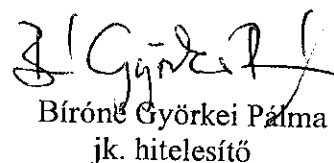 Bíróné Györkei Pálma
jk. hitelesítő